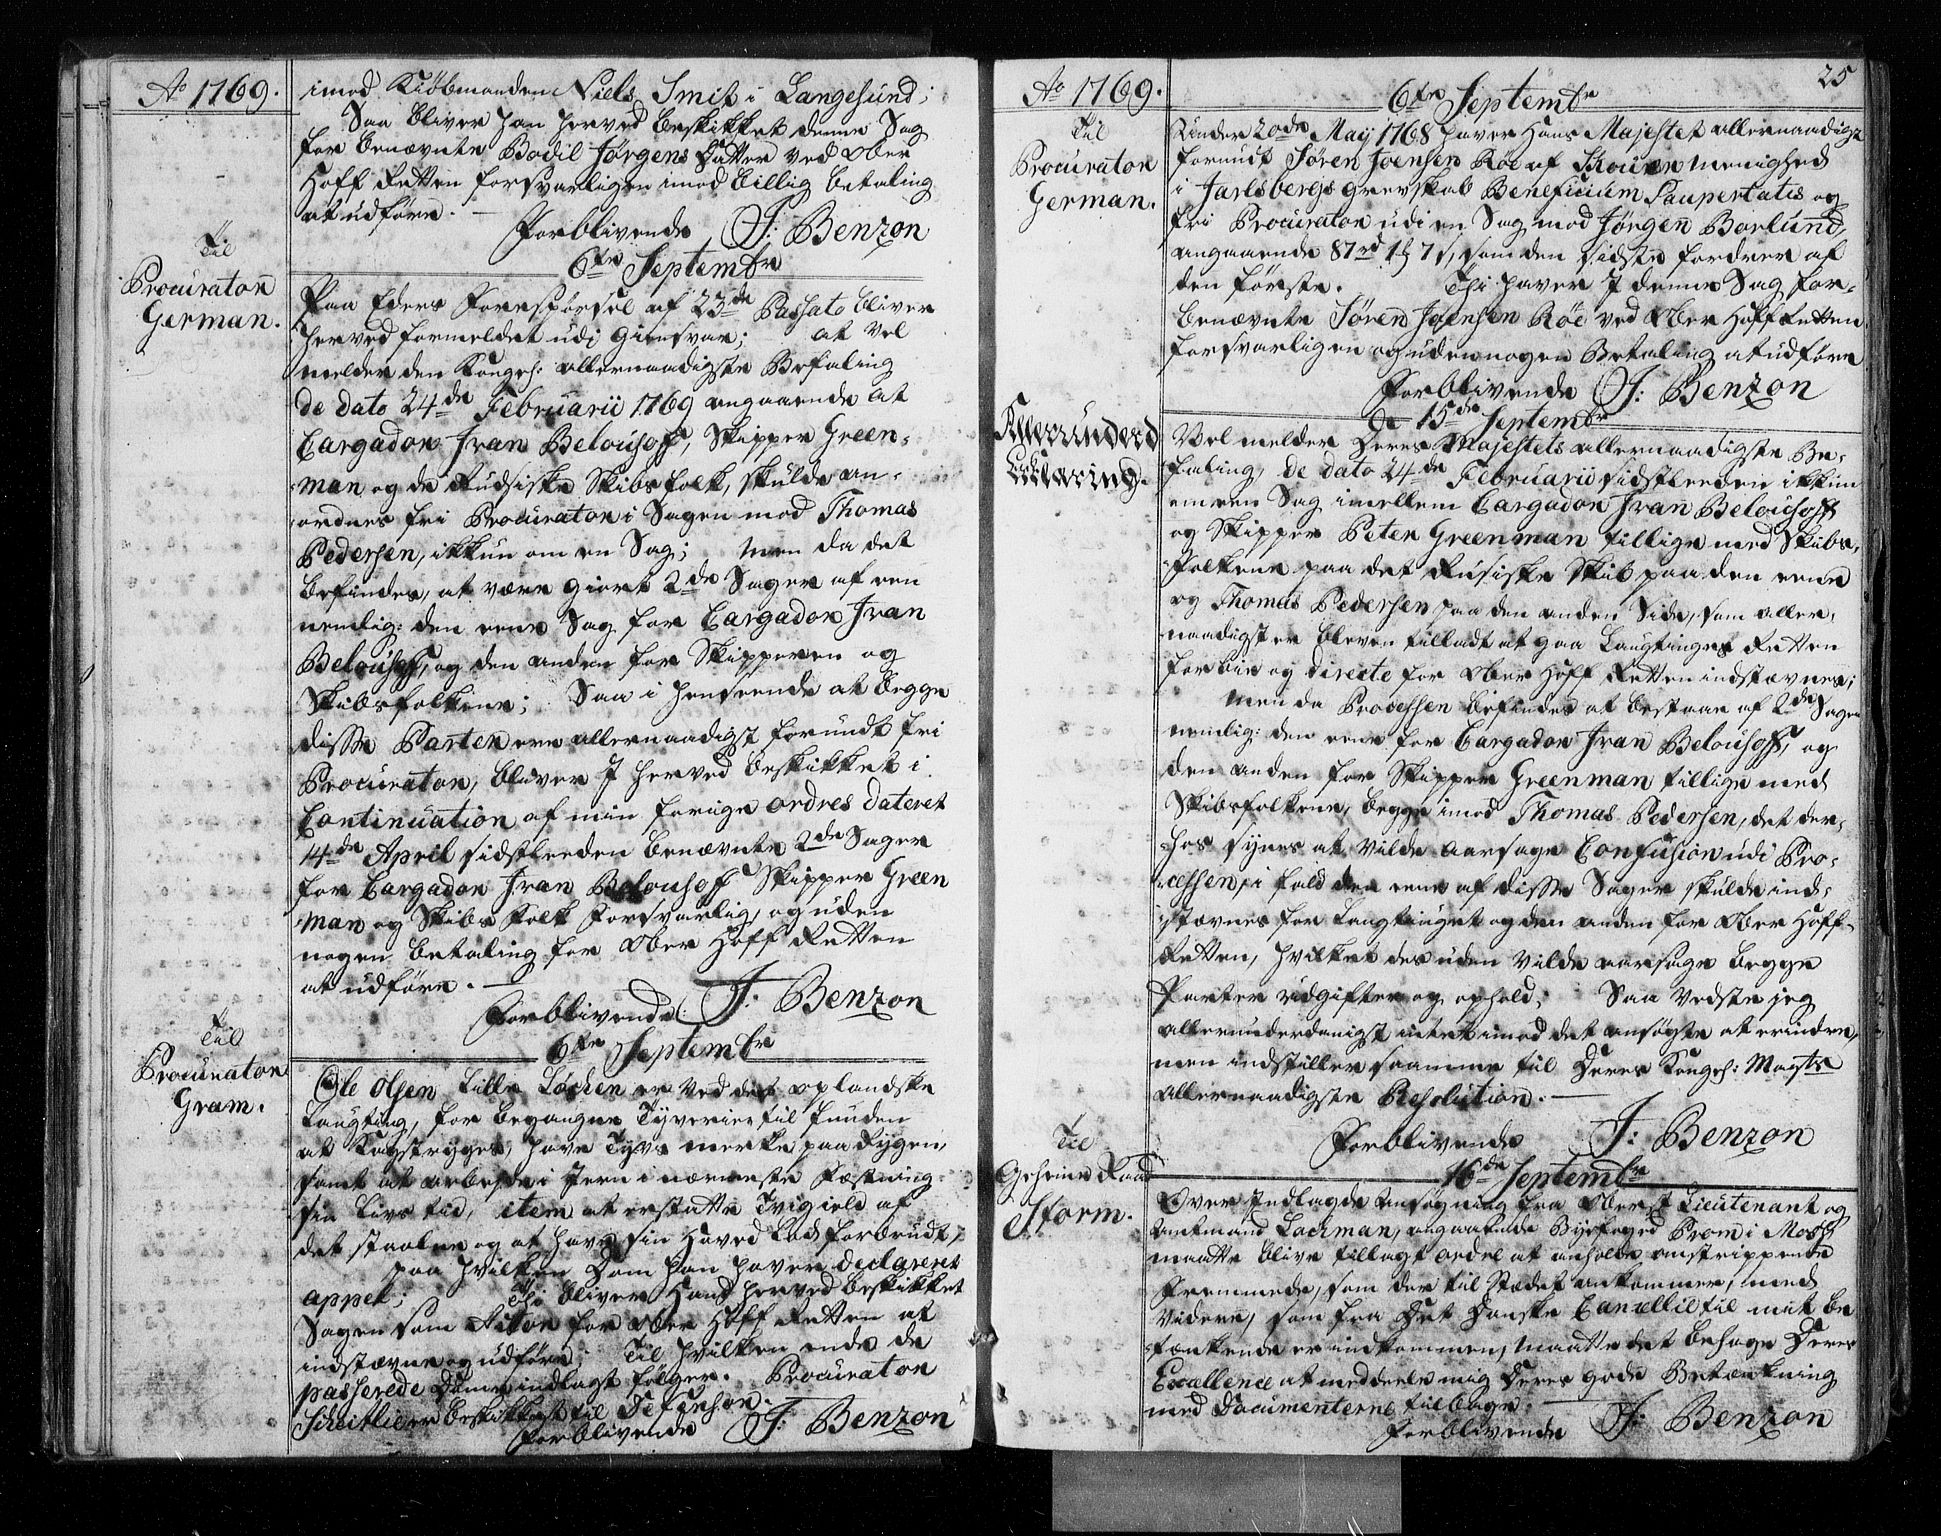 Ao 1769.
imod Kiöbmanden Niels Smit i Langesund;
Saa bliver han herved beskikket denne Sag
for benævnte Bodil Jørgens Datter ved Ober
Hoff Retten forsvarligen imod billig betaling
at udföre.
forblivende J: Benzon
6te Septembr
Til
Procurator
German.
Paa Eders Forespörsel af 23de Passato bliver
herved formeldet udi giensvar; at vel
melder den Kongel: allernaadigste Befaling
de dato 24de Februarii 1769 angaaende at
Cargador Ivan Belousoff, Skipper Green-
-man og de Rudsiske Skibsfolk, skulde an-
-ordnes fri Procurator i Sagen mod Thomas
Pedersen, ikkun om en Sag; men da det
befindes, at være giort 2de Sager af een
nemlig: den eene Sag for Cargador Ivan
Belousoff, og den anden for Skipperen og
Skibsfolkene; Saa i henseende at begge
disse Parter ere allernaadigst forundt fri
Procurator, bliver I herved beskikket i
Continuation af min forige ordres dateret
4de April sidstleeden benævnte 2de Sager
for Cargador Ivan Belousoff Skipper Green
-man og Skibs Folk forsvarlig, og uden
nogen betaling for Ober Hoff Retten
at udföre.
Forblivende: J: Benzon
6te Septembr
Til
Procurator
Gram.
Ole Olsen Lille Löchen er ved det oplandske
Laugting, for begangne Tyverier til funden
at Kagstryges, have Tyvs merke paa Rygen,
samt at arbejde i Jern i nærmeste Fæstning
sin Livs tid, item at erstatte Tvigield af
det staalne og at have sin Hoved Lod forbrudt,
paa hvilken Dom han haver declareret
appel; Thi bliver Hand herved beskikket
Sagen som Actor for Ober Hoff Retten at
indstævne og udföre; Til hvilken ende de
passerede Domme indlagt fölger. Procurator
Scheitlie er beskikket til Defensor.
forblivende J: Benzon
25
Ao 1769.
6te Septembr
Til
Procurator
German.
Under 20de Maij 1768 haver Hans Majestet allernaadigst
forundt Sören Joensen Röe af Skouen menighed
i Jarlsbergs Grevskab Beneficium Paupertatis og
fri Procurator udi en Sag mod Jørgen Borlund,
angaaende 87 rd 1 ꝑ 7 s, som den sidste fordrer af
den förste. Thi haver I denne Sag for-
benævnte Sören Joensen Röe ved Ober Hoff Retten
forsvarligen og uden nogen Betaling at udföre
Forblivende J: Benzon
d 15de Septembr
Allerunderd
Erklaring.
Vel melder Deres Majestets allernaadigste Be-
faling, de dato 24de Februarii sidstleeden ikkun
om een Sag imellem Cargador Ivan Belousoff
og Skipper Peter Greenman tillige med Skibs-
-folkene paa det Rusiske Skib paa den eene
og Thomas Pedersen paa den anden Side, som aller-
-naadigst er bleven tilladt at gaa Laugtinget Retten
forbie og directe for Ober Hoff Retten indstævnes;
Men da Processen befindes at bestaae af 2de Sager
nemlig: den eene for Cargador Ivan Belousoff, og
den anden for Skipper Greenman tillige med
Skibsfolkene, begge imod Thomas Pedersen, det der-
-hos synes at vilde aarsage Confusion udi Pro-
-cessen, i fald den eene af disse Sager skulde ind-
-stævnes for Laugtinget og den anden for Ober Hoff-
Retten, hvilket desuden vilde aarsage begge
Parter udgifter og ophold; Saa vedste jeg
allerunderdanigst intet imod det ansögte at erindre,
men indstiller saamme til Deres Kongel: Maysts
allernaadigste Resolution.
Forblivende J: Benzon
16de Septembr
Til
Geheime Raad
Storm.
Over Indlagde Ansögning fra Oberst Lieutenant og
Amtmand Lachman, angaaende Byefoged Prom i Moss
maatte blive tillagt ordre at anholde omstrippende
Fremmede, som der til Stædet ankommer, med
videre, som fra Det Danske Cancellie til mit be
-tænkende er indkommen, maatte det behage Deres
Excellence at meddeele mig Deres gode Betænkning
med Documenterne tilbage.
Forblivende J: Benzon